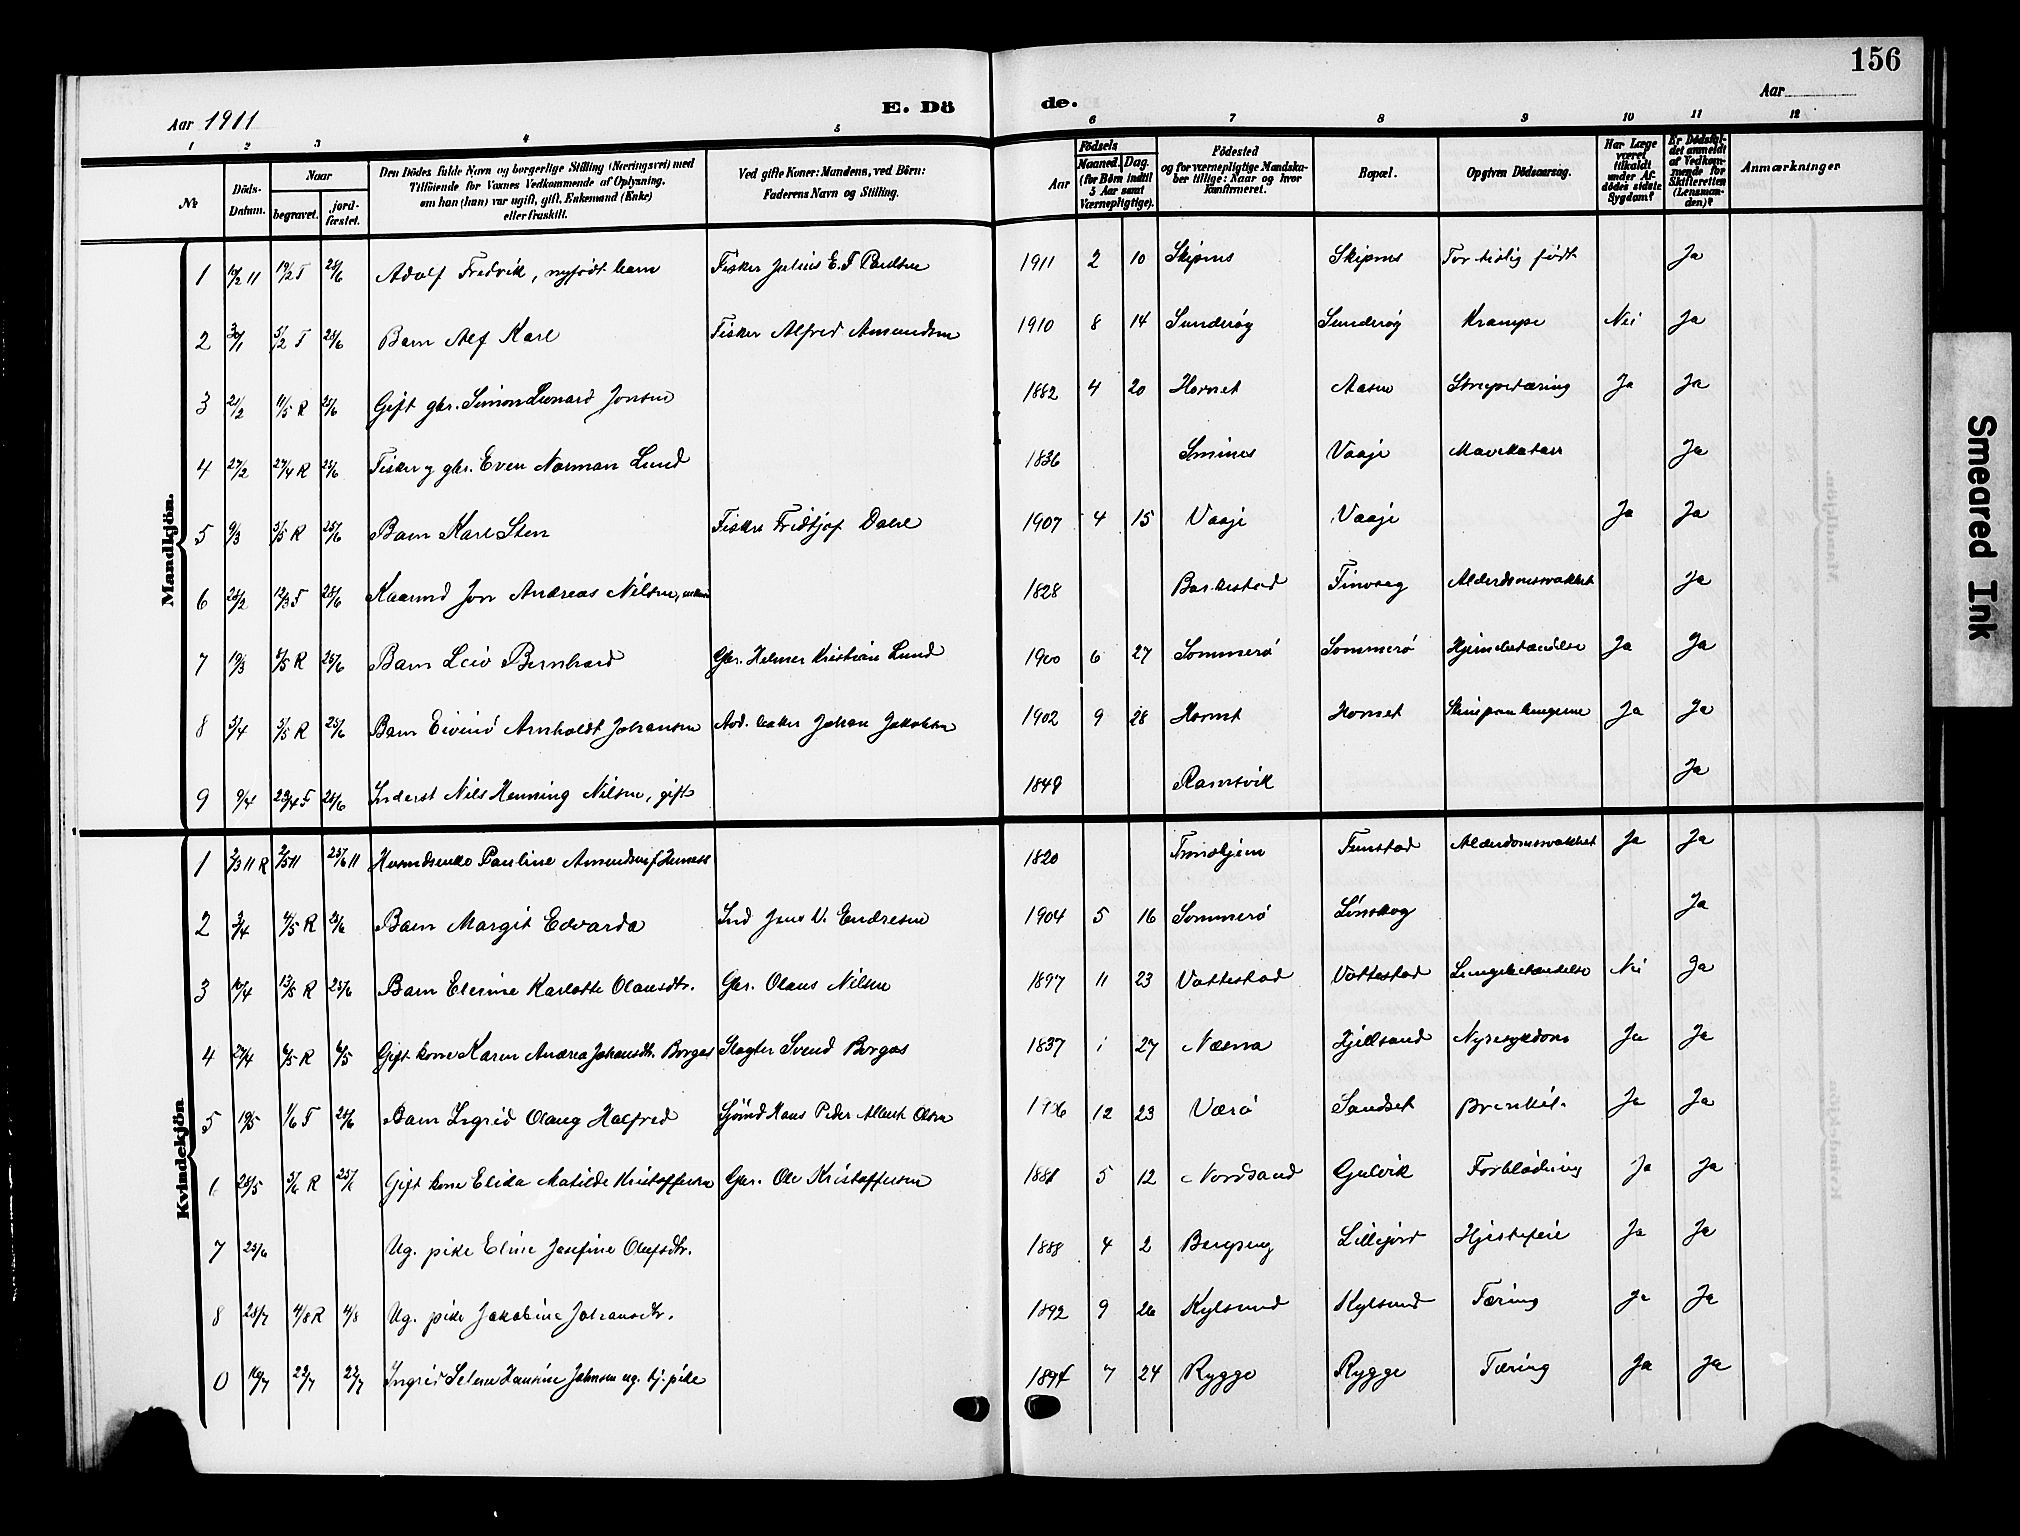 156
Aar 1911
E. Dö de.
Aar
1 2 3 4 5 6 7 8 9 10 11 12
№
Döds-Datum.
Naar
begravet.
jord-fæstet.
Den Dödes fulde Navn og borgerlige Stilling (Næringsvei) med
Tilföiende for Voxnes Vedkommende af Oplysning,
om han (hun) var ugift, gift, Enkemand (Enke)
eller fraskilt.
Ved gifte Koner: Mandens, ved Börn:
Faderens Navn og Stilling.
Födsels
Aar
Maaned. Dag.
(for Börn indtil
5 Aar samt
Værnepligtige).
Födested
og for værnepligtige Mandska-
ber tillige: Naar og hvor
Konfirmeret.
Bopæl.
Opgiven Dödsaarsag.
Har Læge
været
tilkaldt
under Af-
dödes sidste
Sygdom?
Er Dödsfal-
det anmeldt
af Vedkom-
mende for
Skifteretten
(Lensman-
den)?
Anmærkninger
Mandkjön.
1 10/2 11 19/2 T 25/6 Adolf Fredvik, nyfödt barn Fisker Julius E. T. Paulsen 1911 2 10 Skipnes Skipnes For tidlig født Ja
2 30/1 5/2 T 25/6 Barn Alf Karl Fisker Alfred Amundsen 1910 8 14 Sunderøy Sunderøy Krampe Nei Ja
3 21/2 11/5 R 25/6 Gift gbr. Simon Leonard Jonsen 1882 4 20 Hovset Aasen Strupetæring Ja Ja
4 27/2 27/4 R 25/6 Fisker og gbr. Even Norman Lund 1836 Smines Vaaje Mavekatarr Ja
5 9/3 5/5 R 25/6 Barn Karl Sten Fisker Fridtjof Dahl 1907 4 15 Vaaje Vaaje Ja Ja
6 25/2 12/3 T 25/6 Kaarmd Jon Andreas Nilsen, 1828 Barkestad Finvaag Alderdomssvakhet Ja
7 19/3 5/5 R 25/6 Barn Leiv Bernhard Gbr. Helmer Kristian Lund 1900 6 27 Sommerö Sommerö Hjernebetændelse Ja Ja
8 5/4 5/5 R 25/6 Barn Eivind Arnholdt Johansen Johan Jakobsen 1902 9 28 Hovset Hovset Ja Ja
9 9/4 23/4 T 25/6 Inderst Nils Henning Nilsen, gift 1849 Ramsvik Ja
Kvindekjön
1 2/3 11 R 2/5 11 25/6 11 Husmdsenke Pauline Amundsen f. 1820 Trondhjem Finstad Alderdomssvakhet Ja Ja
2 3/4 4/5 R 2/6 Barn Margit Edvarda Ind Jens Endresen 1904 5 16 Sommerö Lönskog Ja
3 10/4 13/5 R 25/6 Barn Elerine Karlotte Olausdtr. Gbr. Olaus Nilsen 1897 11 23 Vottestad Vottestad Lungebetændelse Nei Ja
4 27/4 6/5 R 6/5 Gift kone Karen Andrea Johansdtr. Borgas Slagter Svend Borgas 1837 1 27 Næsna Hjellsand Nyresykdom Ja Ja
5 19/5 1/6 T 25/6 Barn Ingrid Olaug Halfred Sjömd Hans Peder Albert Olsen 1906 12 23 Værö Sandset Ja Ja
1 28/5 5/6 R 25/6 Gift kone Elida Matilde Kristoffersen Gbr. Ole Kristoffersen 1881 5 12 Nordsand Gulvik Forblödning Ja Ja
7 25/6 Ug. pike Eline Josefine Olufsdtr. 1888 4 2 Lillejord Hjertefeil Ja Ja
8 28/7 4/8 R 4/8 Ug. pike Jakobine Johansdtr. 1892 9 26 Kylsund Kylsund Tæring Ja Ja
0 19/7 22/7 22/7 Ingrid Selma Hansine Johnsen ug. tj. pike 1894 7 24 Rygge Rygge Tæring Ja Ja
Smeared Ink